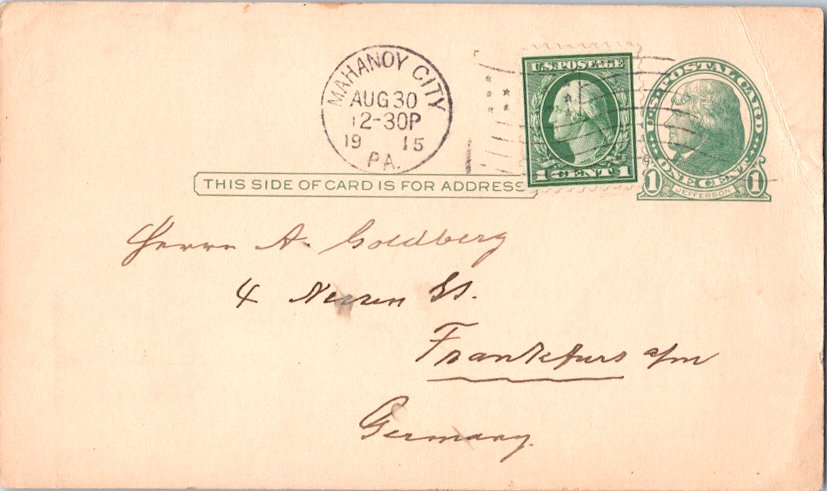 MAHANOY CITY
AUG 30
12-30P
19 15
PA.
U.S. POSTAGE
1 CENT 1
U.S. POSTAL CARD
ONE CENT
1 JEFFERSON 1
THIS SIDE OF CARD IS FOR ADDRESS
Herrn A. Goldberg
4 St.
Frankfurt a/m
Germany.